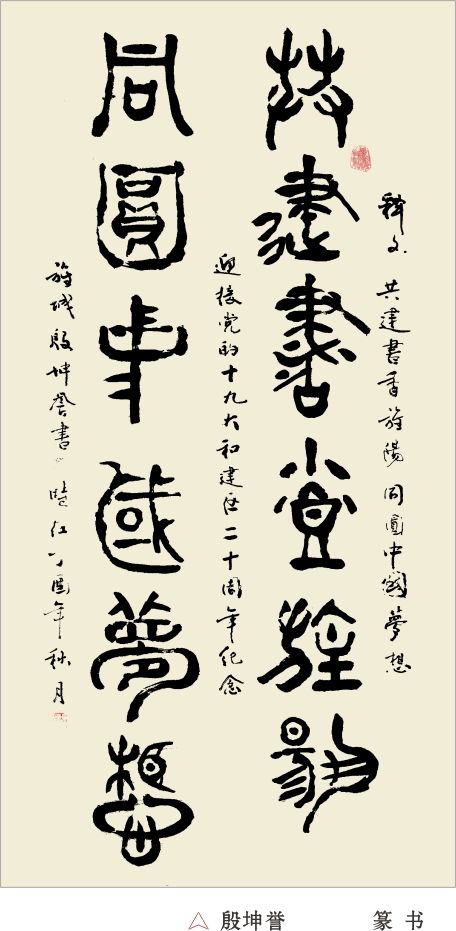 释文 共建書香旌陽 同圓中國夢想
共建書香旌陽
迎接党的十九大和建区二十周年纪念
同圓中國夢想
旌城殷坤誉書 丁酉年秋月
殷坤誉 篆书